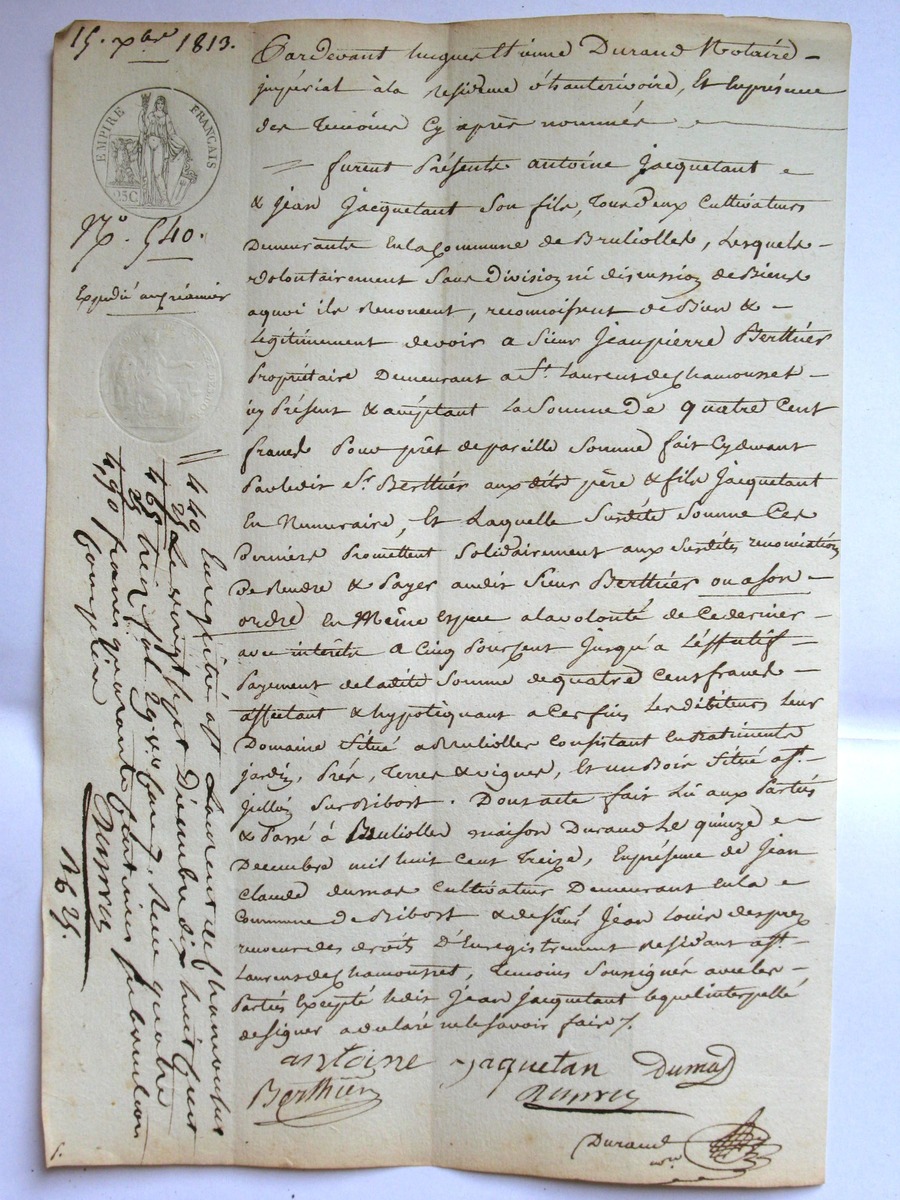 15. xbre 1813.
EMPIRE FRANÇAIS
25 C
N.o 540.
Expedié au créancier
Pardevant hugues Etienne Durand Notaire
impérial à la residence d'hauterivoire, Et En présence
des Temoins Cy après nommés
furent Présents antoine Jacquetant
& Jean Jacquetant Son fils, Tous deux Cultivateurs
Demeurants En la Commune de Brulliolles, Lesquels
volontairement Sans Division ni discussion de Biens
a quoi ils Renoncent, reconnoissent de Bien &
Legitimement devoir a Sieur Jean pierre Berthier
Propriétaire Demeurant a St. Laurent de Chamousset
icy Présent & acceptant La Somme De quatre Cent
francs Pour prêt de pareille Somme fait Cy devant
Par ledit Sr. Berthier aux dits père & fils Jacquetant
En Numeraire, Et Laquelle Susdite Somme Ces
Derniers Promettent Solidairement aux Susdites renonciations
De Rendre & Payer audit Sieur Berthier ou a son
ordre En Même Espece a la volonté de Ce dernier
avec intérêts a Cinq Pour Cent Jusqu'a L'effectif
Payement de ladite Somme de quatre Cent francs
affectant & hypotéquant a Ces fins Les débiteurs Leur
Domaine Situé a Brulliolles Consistant En Batiments
jardin, Prés, Terres & vignes, Et un Bois Situé a St.
Sur Ribost. Dont acte fait Lû aux Parties
& Passé à Brulliolles maison Durand Le quinze
Decembre mil huit Cent Treize, En présence de Jean
Claude dumas Cultivateur Demeurant En la
Commune de Ribost & de Sieur Jean Louis
receveur des droits D'Enregistrement Residant a St.
Laurent de Chamousset, Temoins Soussignés avec les
Parties Excepté ledit Jean Jacquetant lequel interpellé
de signer a declaré ne le savoir faire
antoine jaquetan Dumas
Berthier
Durand
Enregistré a St Laurent de Chamousset
Le vingt Sept Décembre dix huit Cent
treize
440
25
465
25
4,90
compris